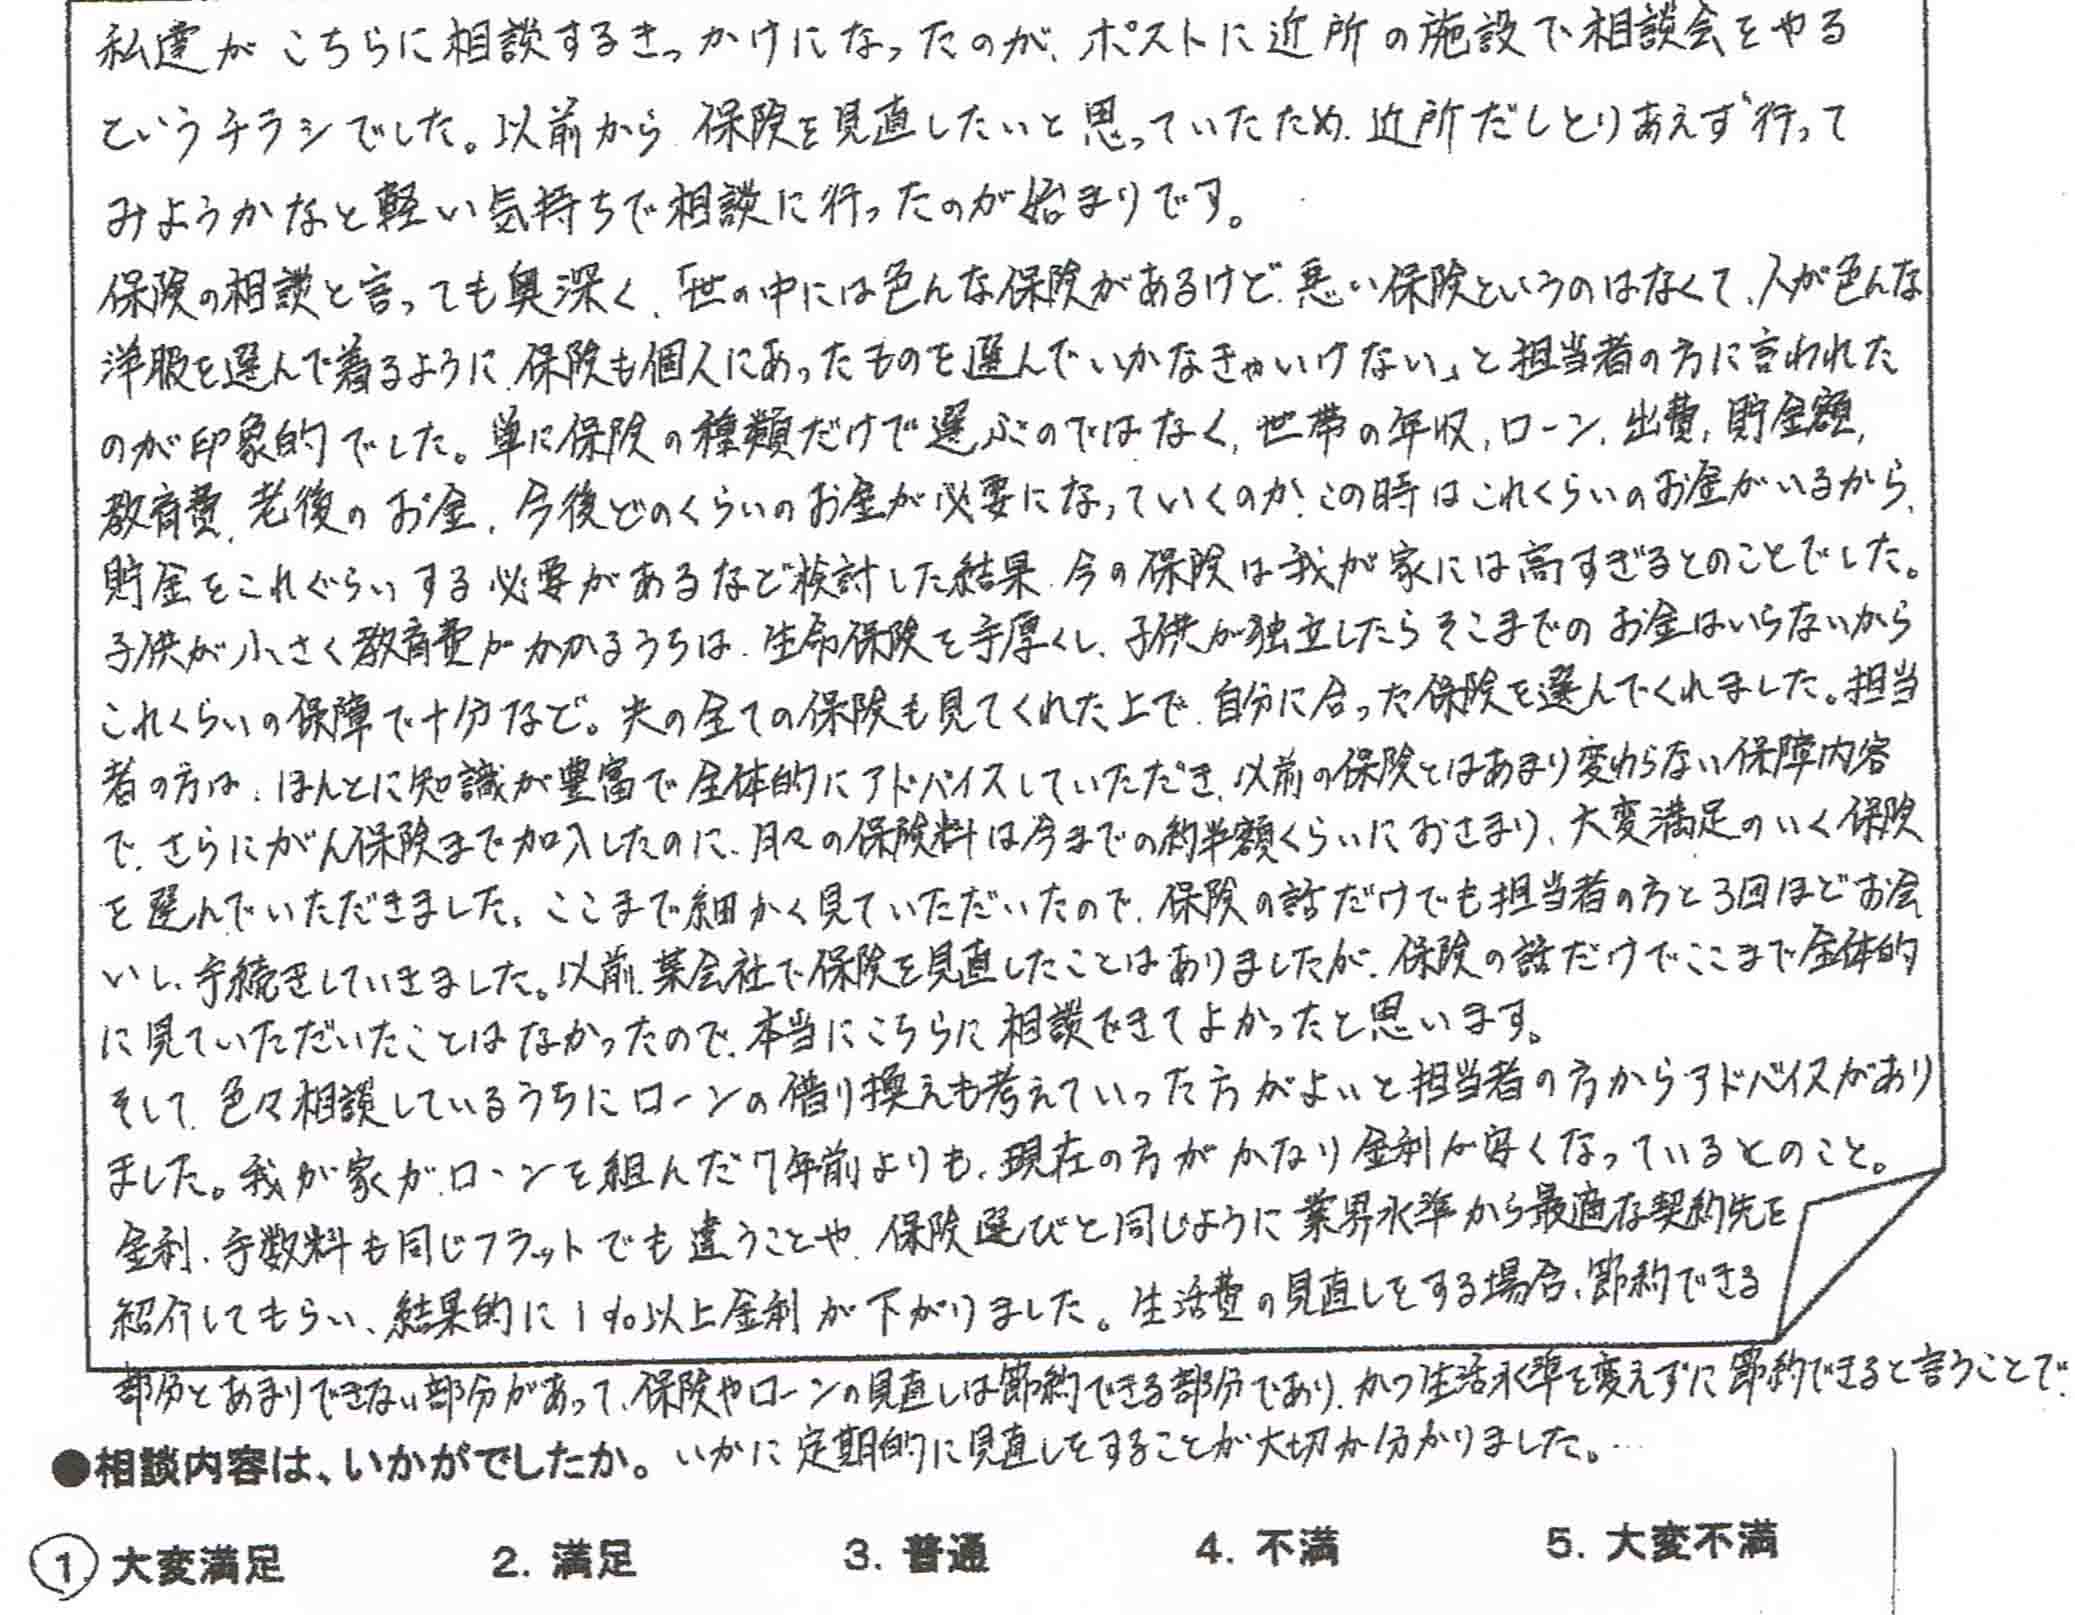 私達がこちらに相談するきっかけになったのが、ポストに近所の施設で相談会をやる
というチラシでした。以前から保険を見直したいと思っていたため、近所だしとりあえず行って
みようかなと軽い気持ちで相談に行ったのが始まりです。
保険の相談と言っても奥深く、「世の中には色んな保険があるけど、悪い保険というのはなくて、人が色んな
洋服を選んで着るように、保険も個人にあったものを選んでいかなきゃいけない」と担当者の方に言われた
のが印象的でした。単に保険の種類だけで選ぶのではなく、世帯の年収、ローン、出費、貯金額、
教育費、老後のお金、今後どのくらいのお金が必要になっていくのか、この時はこれくらいのお金がいるから、
貯金をこれぐらいする必要があるなど検討した結果、今の保険は我が家には高すぎるとのことでした。
子供が小さく教育費がかかるうちは、生命保険を手厚くし、子供が独立したらそこまでのお金はいらないから
これくらいの保障で十分など。夫の全ての保険も見てくれた上で、自分に合った保険を選んでくれました。担当
者の方は、ほんとに知識が豊富で全体的にアドバイスしていただき、以前の保険とはあまり変わらない保障内容
で、さらにがん保険まで加入したのに、月々の保険料は今までの約半額くらいにおさまり、大変満足のいく保険
を選んでいただきました。ここまで細かく見ていただいたので、保険の話だけでも担当者の方と3回ほどお会
いし、手続きしていきました。以前、某会社で保険を見直したことはありましたが、保険の話だけでここまで全体的
に見ていただいたことはなかったので、本当にこちらに相談できてよかったと思います。
そして、色々相談しているうちにローンの借り換えも考えていった方がよいと担当者の方からアドバイスがあり
ました。我が家がローンを組んだ7年前よりも、現在の方がかなり金利が安くなっているとのこと。
金利、手数料も同じフラットでも違うことや、保険選びと同じように業界水準から最適な契約先を
紹介してもらい、結果的に1%以上金利が下がりました。生活費の見直しをする場合、節約できる
部分とあまりできない部分があって、保険やローンの見直しは節約できる部分であり、かつ生活水準を変えずに節約できると言うことで、
●相談内容は、いかがでしたか。いかに定期的に見直しをすることが大切か分かりました。…
1. 大変満足 2. 満足 3. 普通 4. 不満 5. 大変不満